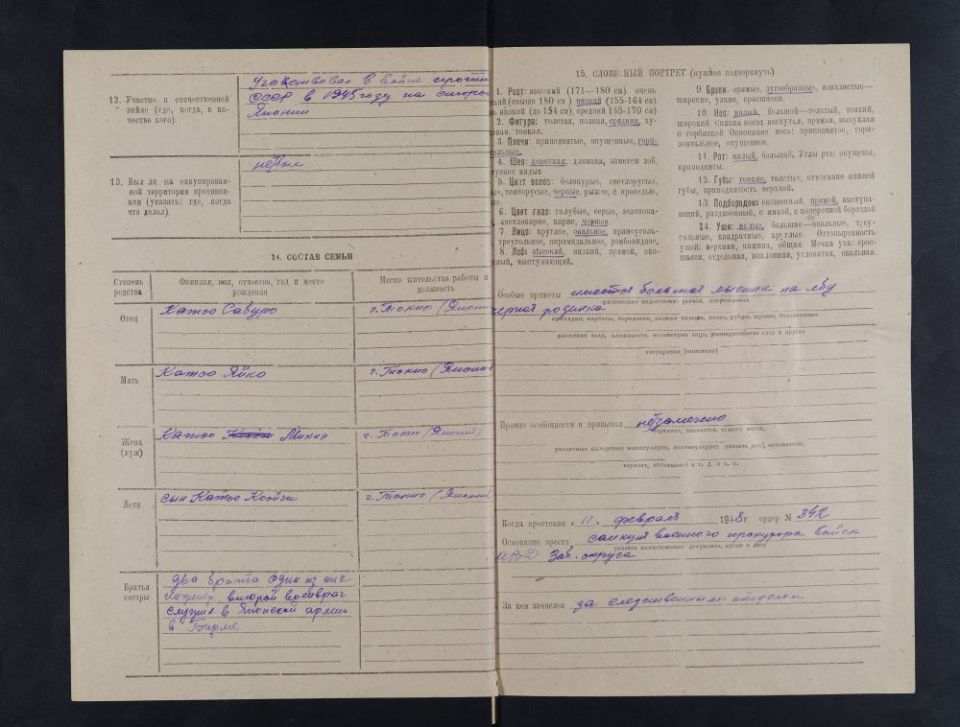 12. Участие в отечественной войне (где, когда, в качестве кого).
Участвовал в войне против
СССР в 1945 году на стороне
Японии
13. Был ли на оккупированной территории противником (указать: где, когда что делал).
не был
14. СОСТАВ СЕМЬИ
Степень родства
Фамилия, имя, отчество, год и место рождения
Место жительства работы и должность
Отец
Катоо Сабуро
г. Токио (Япони
Мать
Катоо Яйко
г. Токио (Япония
Жена (муж)
Катоо Микиэ
г. Токио (Япония)
Дети
сын Катоо
г. Токио (Япония
Братья сестры
два брата один из них
второй
служил в Японской армии
в Бирме
15. СЛОВЕСНЫЙ ПОРТРЕТ (нужное подчеркнуть)
1. Рост: высокий (171—180 см), очень
кий (свыше 180 см) низкий (155-164 см)
низкий (до 154 см), средний (165-170 см)
2. Фигура: толстая, полная, средняя, ху-
тонкая.
3. Плечи: приподнятые, опущенные, гори-
4. Шея: короткая, длинная, заметен зоб,
кадык
5. Цвет волос: белокурые, светлорусые,
темнорусые, черные, рыжие, с проседью,
6. Цвет глаз: голубые, серые, зеленова-
карие, черные
7. Лицо: круглое, овальное, прямоуголь-
треугольное, пирамидальное, ромбовидное,
8. Лоб: высокий, низкий, прямой, ско-
ный, выступающий.
9 Брови: прямые, дугообразные, извилистые—
широкие, узкие, сросшиеся.
10 Нос: малый, большой—толстый, тонкий,
широкий Спинка носа: вогнутая, прямая, выпуклая
с горбинкой Основание носа: приподнятое, гори-
зонтальное, опущенное
11. Рот: малый, большой. Углы рта: опущены,
приподняты.
12. Губы: тонкие, толстые, отвисание нижней
губы, приподнятость верхней.
13. Подбородок: скошенный, прямой, выступа-
ющий, раздвоенный, с ямкой, с поперечной бороздой
14. Уши: малые, большие—овальные, треу-
гольные, квадратные, круглые. Оттопыренность
ушей: верхняя, нижняя, общая. Мочка уха: срос-
шаяся, отдельная, наклонная, угловатая, овальная.
Особые приметы имеется большая на лбу
физические недостатки: увечья, повреждения
черная родинка
татуировка (описание)
Прочие особенности и привычки не замечено
Когда арестован „ 11 „ февраля 1948 г. ордер № 342
Основание ареста санкция военного прокурора войск
указать наименование документа, орган и дату
МВД Заб. округа
За кем зачислен за следственным отделом